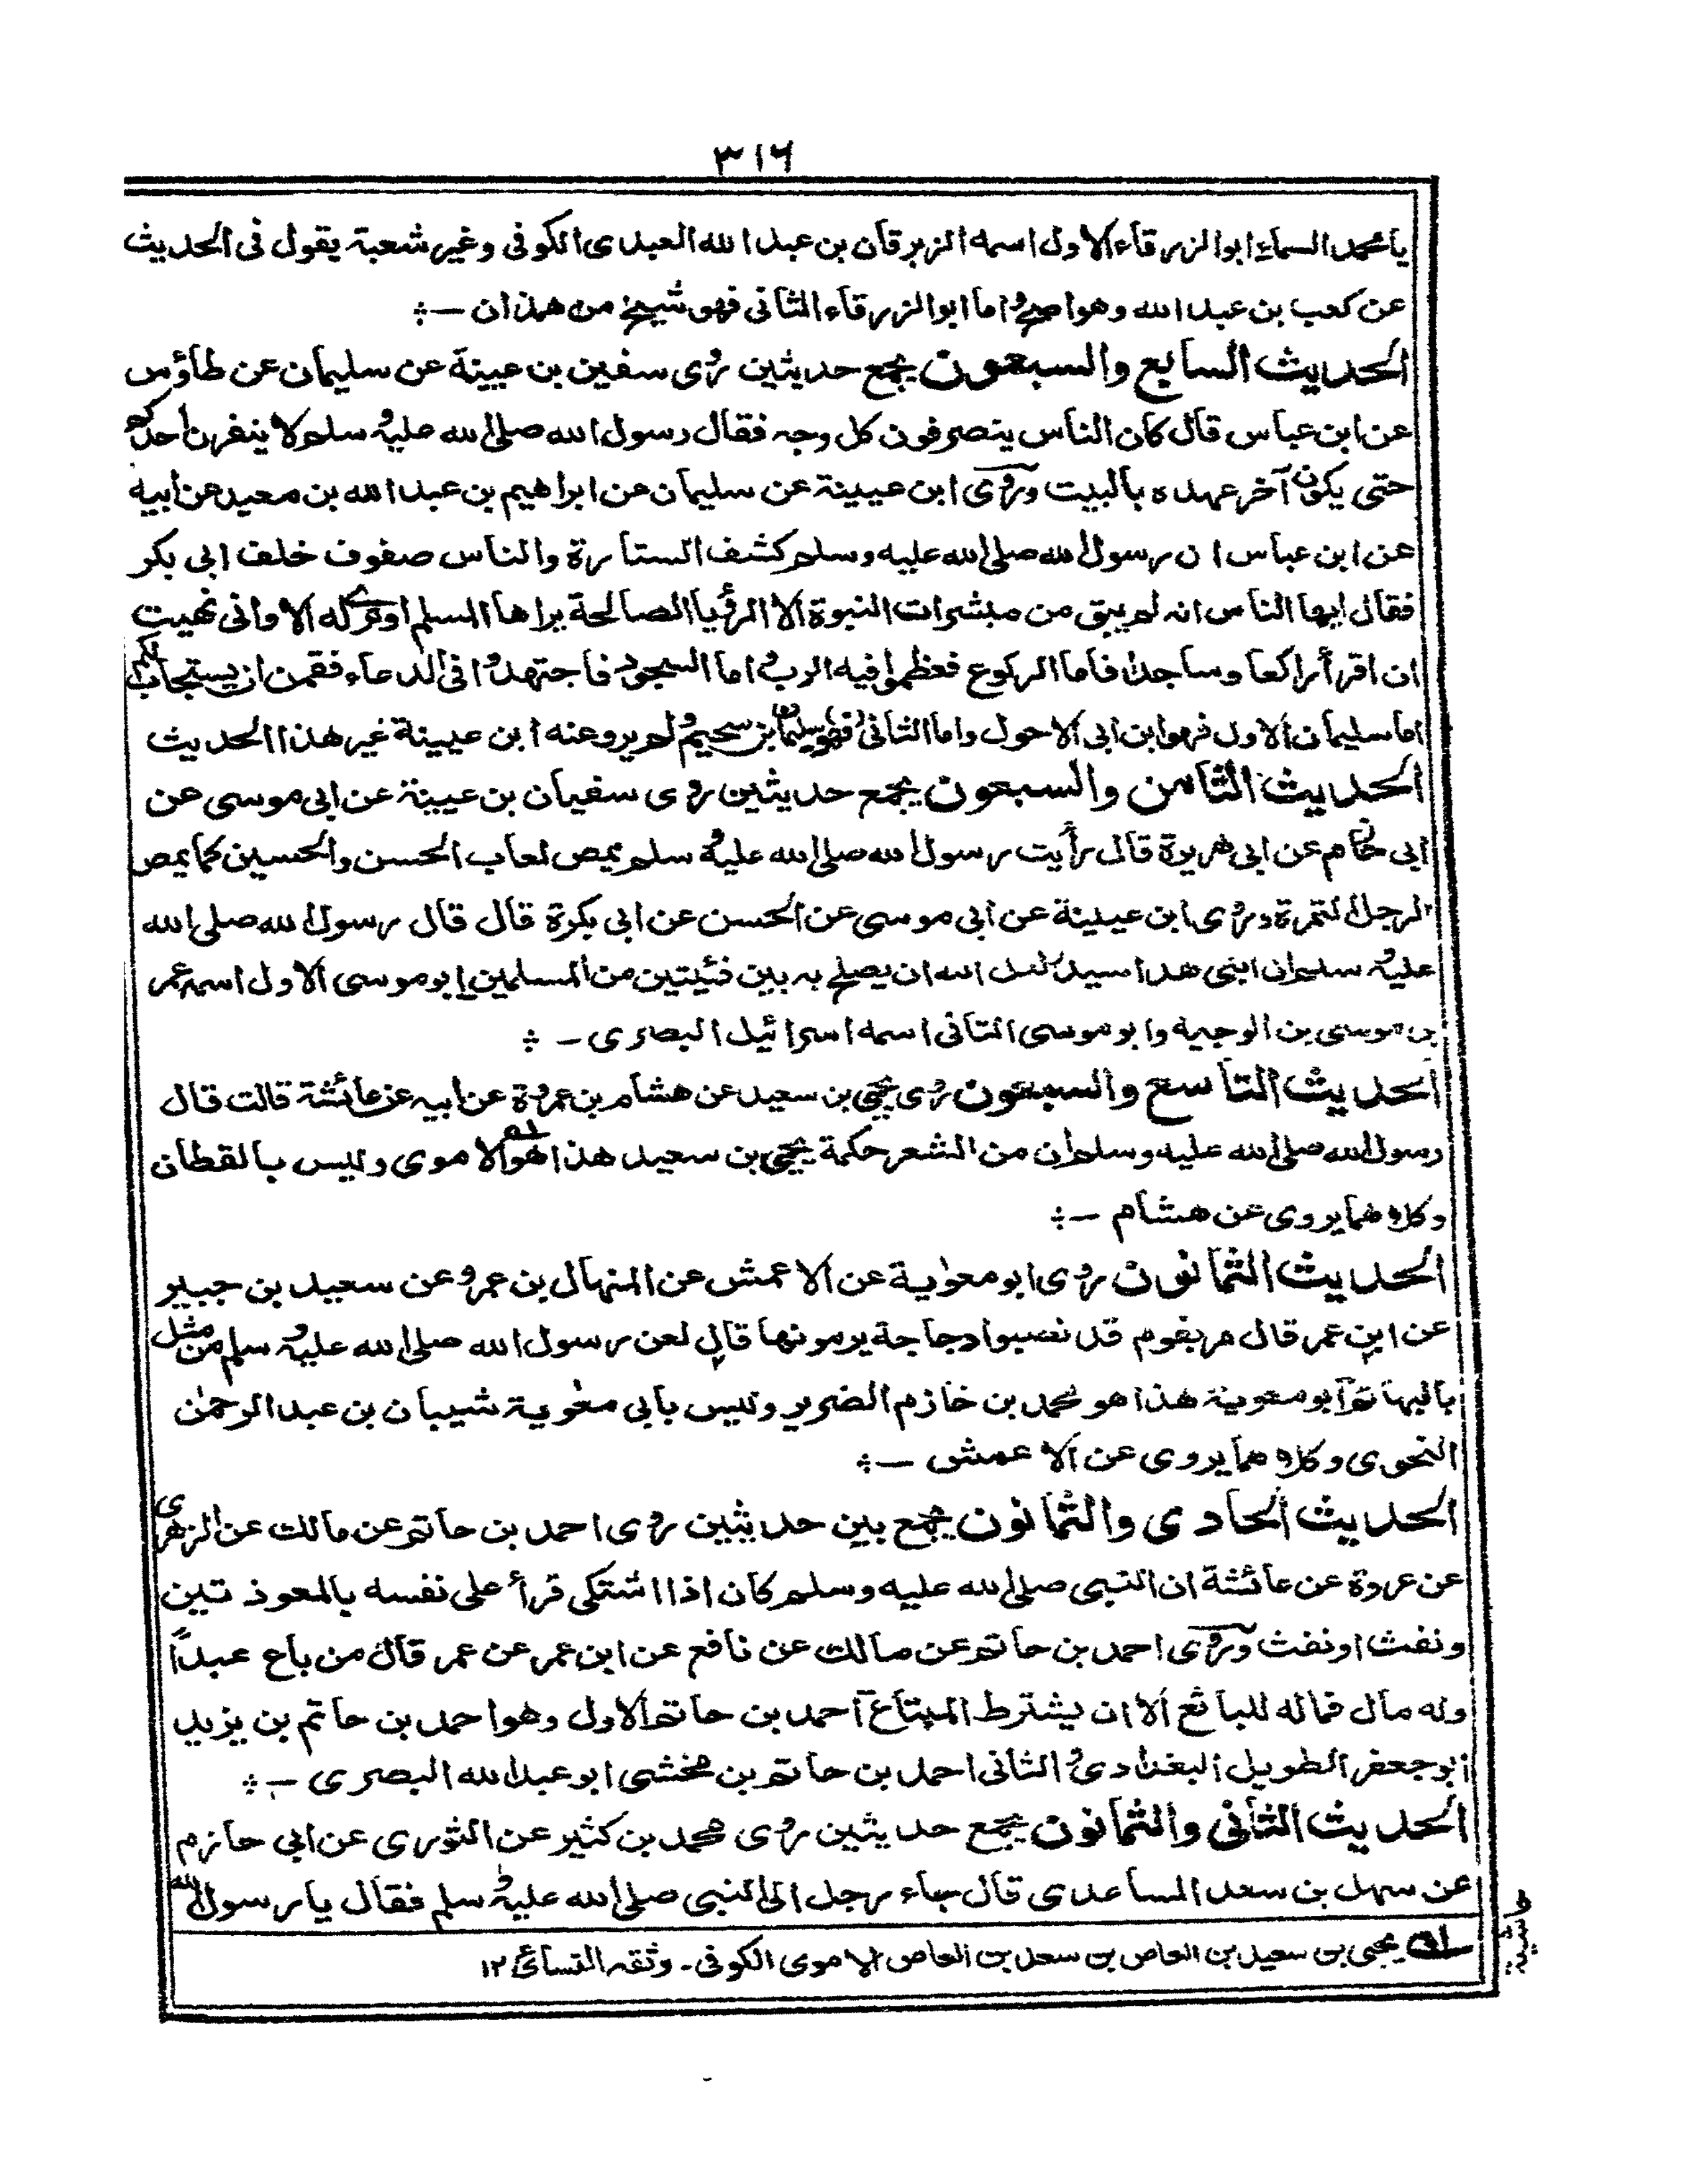 ٣١٦
يا محمد السماء ابو الزرقاء الاول اسمه الزبرقان بن عبد الله العبدى الكوفى وغير شعبة يقول فى الحديث
عن كعب بن عبد الله وهو اصح واما ابو الزرقاء الثانى فهو شيخ من همذان —
الحديث السابع والسبعون يجمع حديثين روى سفين بن عيينة عن سليمان عن طاؤس
عن ابن عباس قال كان الناس ينصرفون كل وجه فقال رسول الله صلى الله عليه وسلم لا ينفرن احدكم
حتى يكون آخر عهده بالبيت وروى ابن عيينة عن سليمان عن ابراهيم بن عبد الله بن معبد عن ابيه
عن ابن عباس ان رسول الله صلى الله عليه وسلم كشف الستارة والناس صفوف خلف ابى بكر
فقال ايها الناس انه لم يبق من مبشرات النبوة الا الرؤيا الصالحة يراها المسلم او ترى له الا وانى نهيت
ان اقرأ راكعا وساجدا فاما الركوع فعظموا فيه الرب واما السجود فاجتهدوا فى الدعاء فقمن ان يستجاب لكم
اما سليمان الاول فهو ابن ابى الاحول واما الثانى فهو سليمان بن سحيم ولم يرو عنه ابن عيينة غير هذا الحديث
الحديث الثامن والسبعون يجمع حديثين روى سفيان بن عيينة عن ابى موسى عن
ابى حازم عن ابى هريرة قال رأيت رسول الله صلى الله عليه وسلم يمص لعاب الحسن والحسين كما يمص
الرجل التمرة وروى ابن عيينة عن ابى موسى عن الحسن عن ابى بكرة قال قال رسول الله صلى الله
عليه وسلم ان ابنى هذا سيد لعل الله ان يصلح به بين فئيتين من المسلمين ابو موسى الاول اسمه عمر
بن موسى بن الوجيه وابو موسى الثانى اسمه اسرائيل البصرى —
الحديث التاسع والسبعون روى يحيى بن سعيد عن هشام بن عروة عن ابيه عن عائشة قالت قال
رسول الله صلى الله عليه وسلم ان من الشعر حكمة يحيى بن سعيد هذا هو الاموى وليس بالقطان
وكلاهما يروى عن هشام —
الحديث الثمانون روى ابو معوية عن الاعمش عن المنهال بن عمرو عن سعيد بن جبير
عن ابن عمر قال مر بقوم قد نصبوا دجاجة يرمونها قال لعن رسول الله صلى الله عليه وسلم من مثل
بالبهائم ابو معوية هذا هو محمد بن خازم الضرير وليس بابى معوية شيبان بن عبد الرحمن
النحوى وكلاهما يروى عن الاعمش —
الحديث الحادى والثمانون يجمع بين حديثين روى احمد بن حاتم عن مالك عن الزهرى
عن عروة عن عائشة ان النبى صلى الله عليه وسلم كان اذا اشتكى قرأ على نفسه بالمعوذتين
ونفث او نفث وروى احمد بن حاتم عن مالك عن نافع عن ابن عمر عن عمر قال من باع عبدا
وله مال فماله للبائع الا ان يشترط المبتاع احمد بن حاتم الاول وهو احمد بن حاتم بن يزيد
ابو جعفر الطويل البغدادى والثانى احمد بن حاتم بن مخشى ابو عبد الله البصرى —
الحديث الثانى والثمانون يجمع حديثين روى محمد بن كثير عن الثورى عن ابى حازم
عن سهل بن سعد الساعدى قال جاء رجل الى النبى صلى الله عليه وسلم فقال يا رسول الله
حاشية
له يحيى بن سعيد بن العاص بن سعد بن العاص الاموى الكوفى۔ وثقه النسائى ١٢